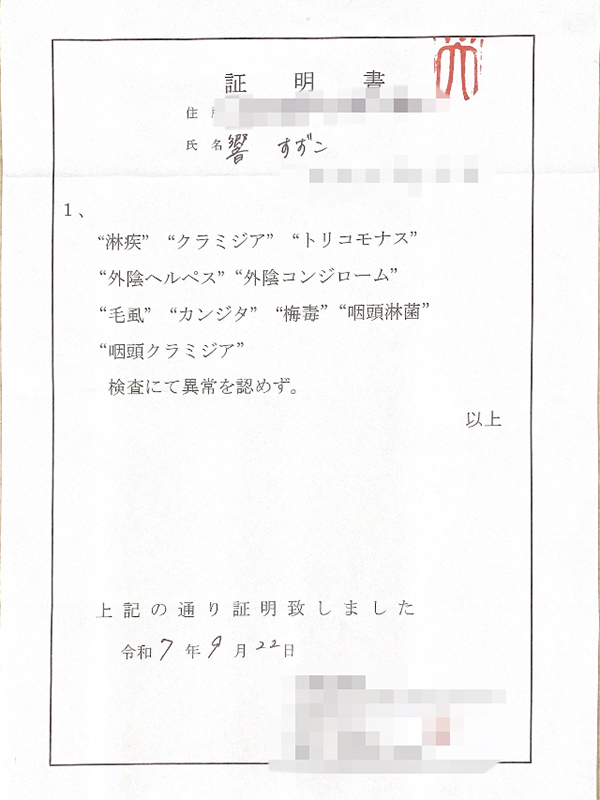 証明書
住
氏名 響 すずこ
1、
“淋疾” “クラミジア” “トリコモナス”
“外陰ヘルペス” “外陰コンジローム”
“毛虱” “カンジタ” “梅毒” “咽頭淋菌”
“咽頭クラミジア”
検査にて異常を認めず。
以上
上記の通り証明致しました
令和7年9月22日